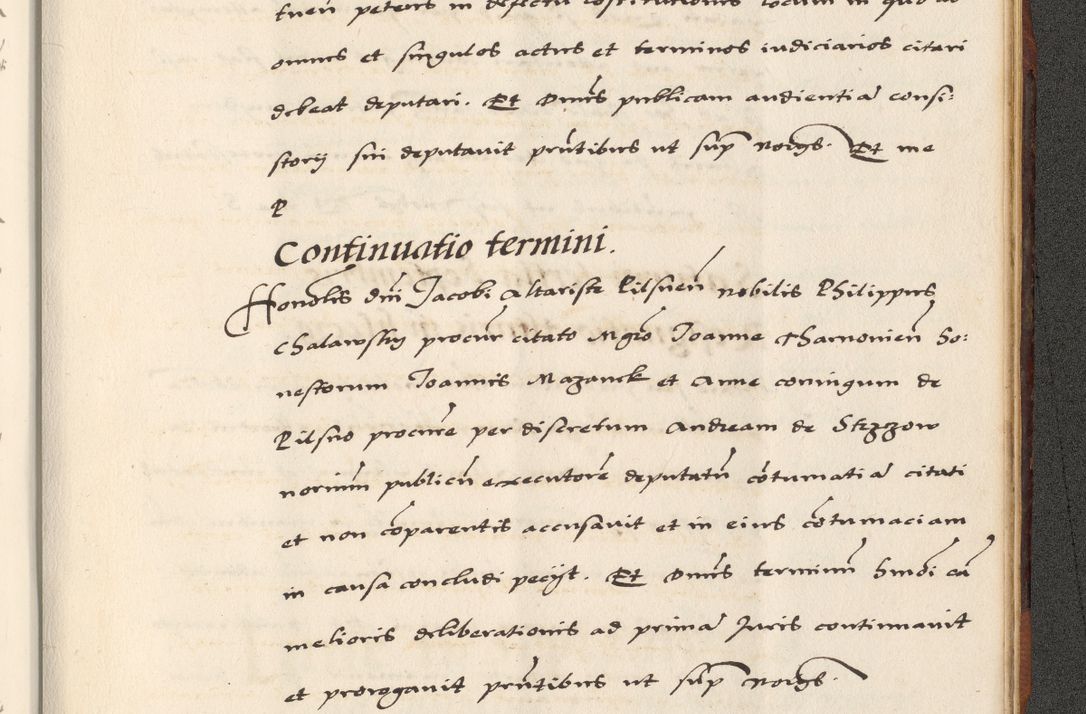 tuen peteris in defectu constitutionis locum in quo ad
omnes et singulos actus et terminos iudiciarios citari
debeat deputari. Et Dnus publicam audientiā consi:
storij sui deputavit pntibus ut sup Norgs. Et me
P
Continuatio termini.
Honolis dni Jacobi Altariste Pilsnen nobilis Philippus
Chalawsky procur citato Mgro Joanne Charnonien ho:
nestorum Joannis Mazanek et Anne coniugum de
Pilsno procure per discretum Andream de Strzzow
norium publicū executore deputatū cōtumatiā citati
et non cōparentis accusavit et in eius cōtumaciam
in causa concludi petijt. Et Dnus terminū hmōi cā
melioris deliberationis ad primā Juris continuavit
et prorogavit pnтibus ut sup Norgs.